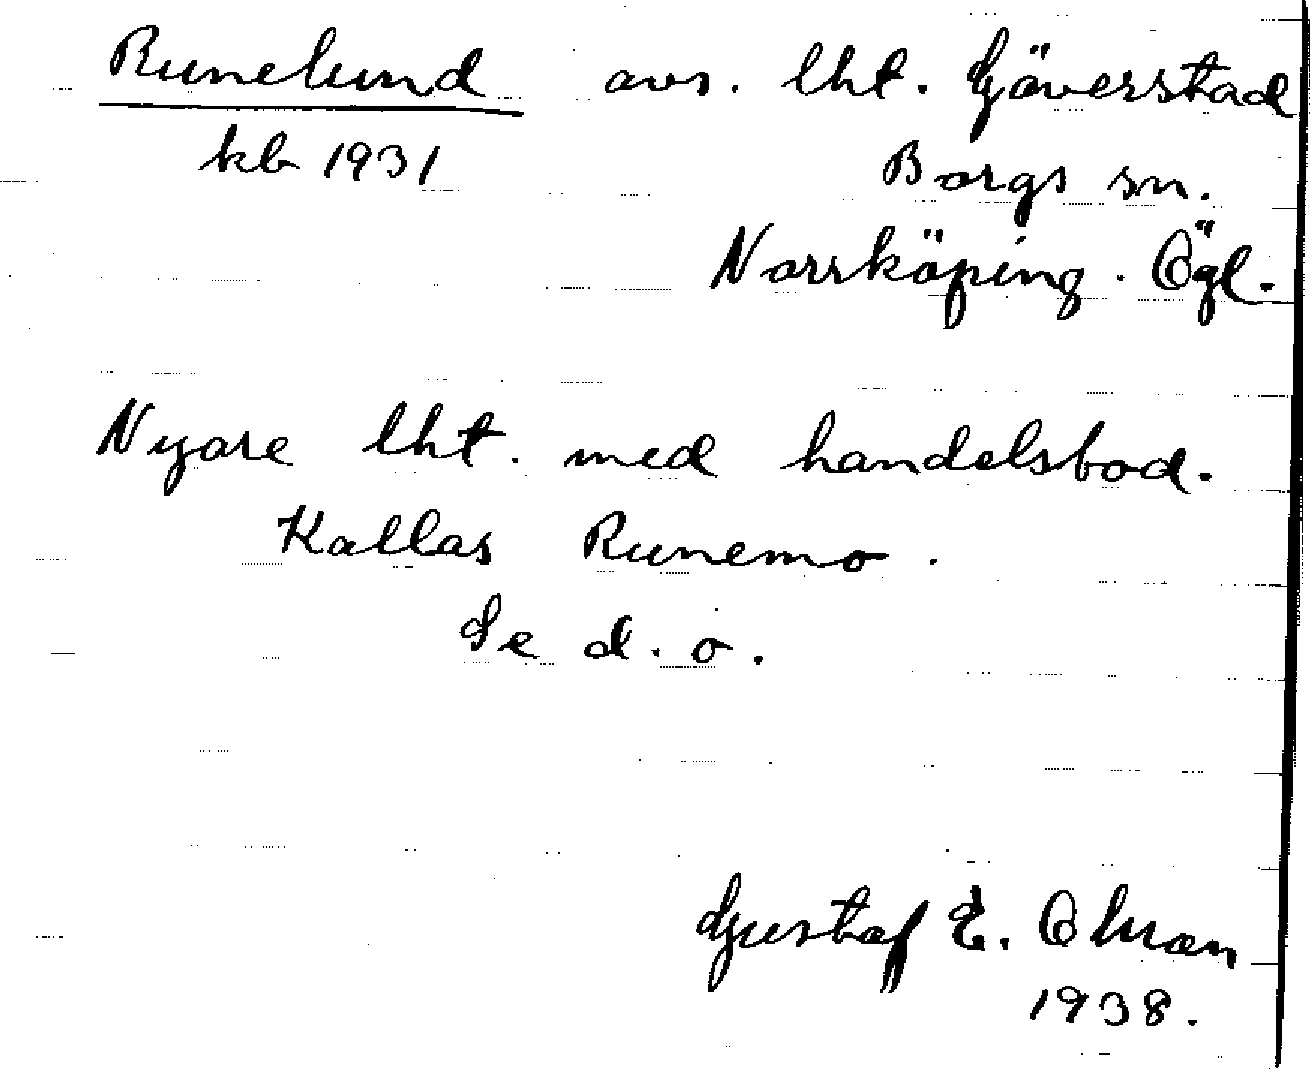 Runelund avs. lht. Gäverstad
kb 1931 Borgs sn.
Norrköping. Ögl.
Nyare lht. med handelsbod.
Kallas Runemo.
Se d. o.
Gustaf E. Olsson
1938.